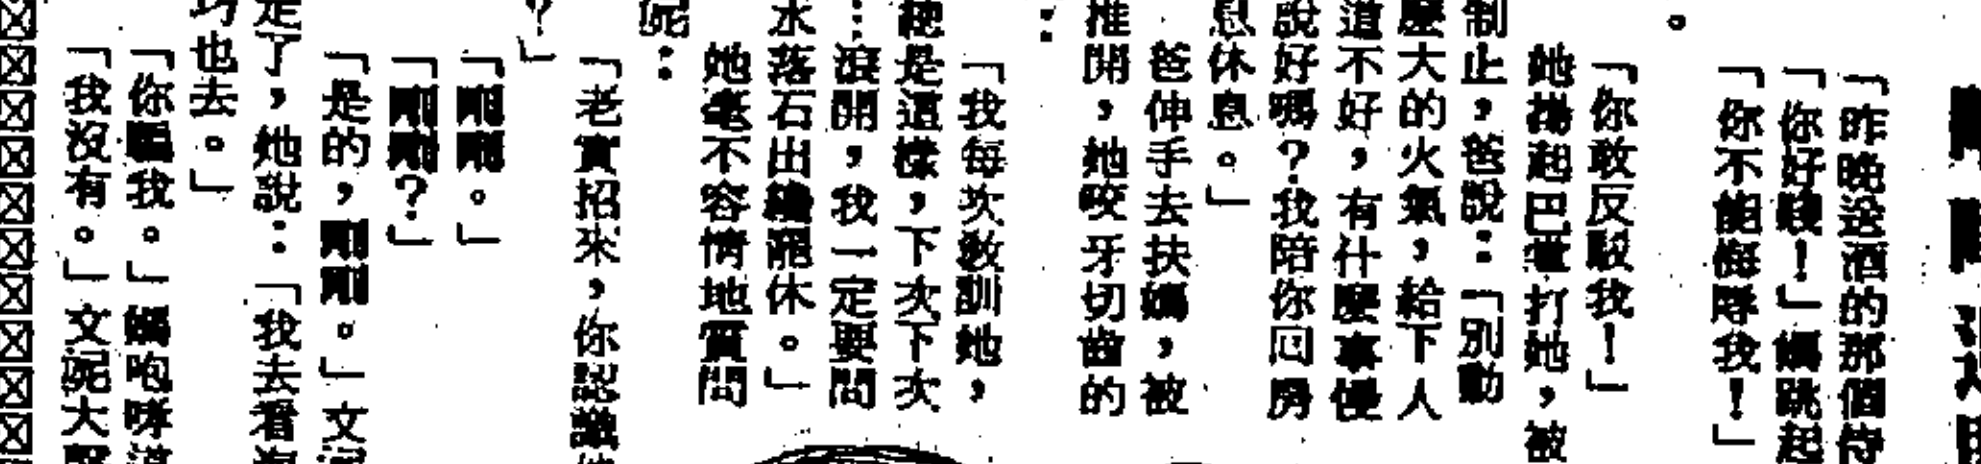 「昨晚送酒的那個侍
「你好賤！」媽跳起
「你不能侮辱我！」
。
「你敢反駁我！」
她揚起巴掌打她，被
制止，爸說：「別動
麼大的火氣，給下人
道不好，有什麼事慢
說好嗎？我陪你回房
息休息。」
爸伸手去扶媽，被
推開，她咬牙切齒的
：
「我每次教訓她，
總是這樣，下次下次
…滾開，我一定要問
水落石出纔罷休。」
她毫不容情地質問
妮：
「老實招來，你認識
？」
「剛剛。」
「剛剛？」
「是的，剛剛。」文
是了，她說：「我去看
巧也去。」
「你騙我。」媽咆哮道
「我沒有。」文妮大